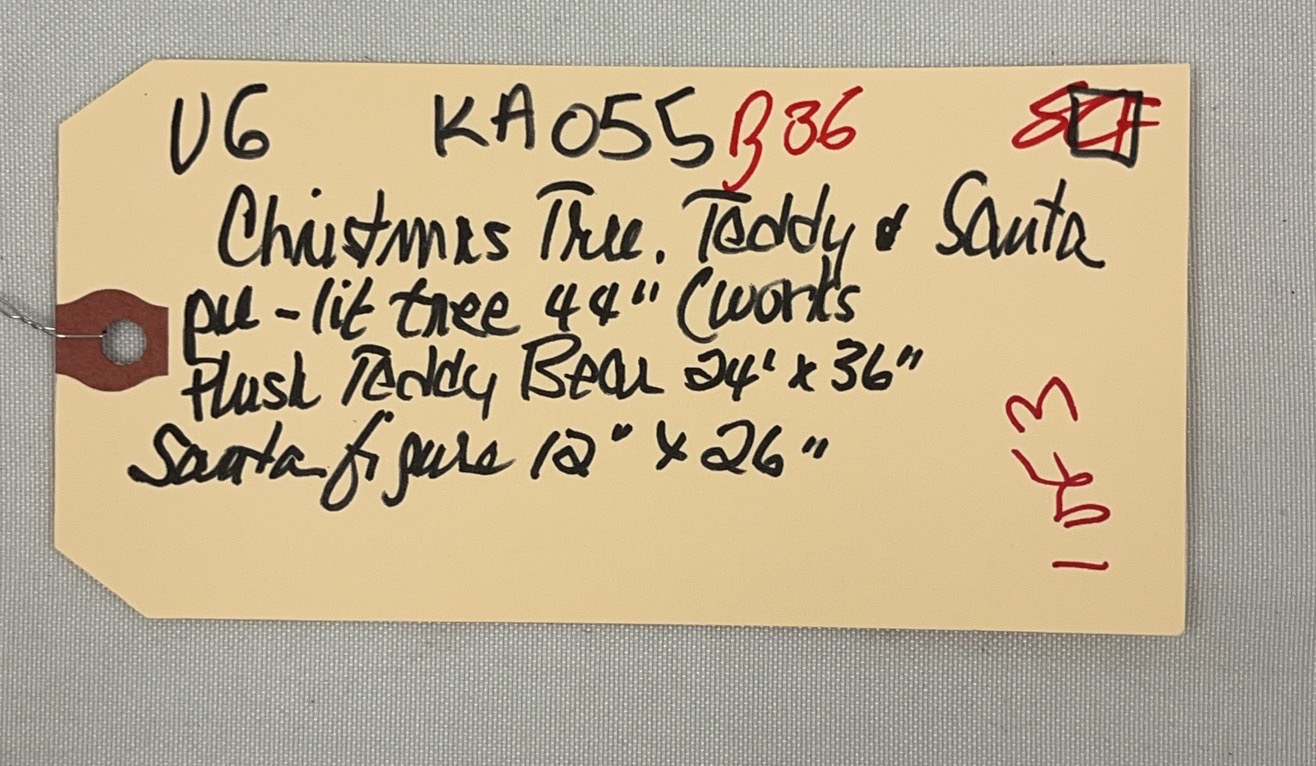 V6 KA055 B36 SCF
Christmas Tree. Teddy & Santa
pre-lit tree 44" (works
Plush Teddy Bear 24' x 36"
Santa figure 12" x 26"
1 of 3